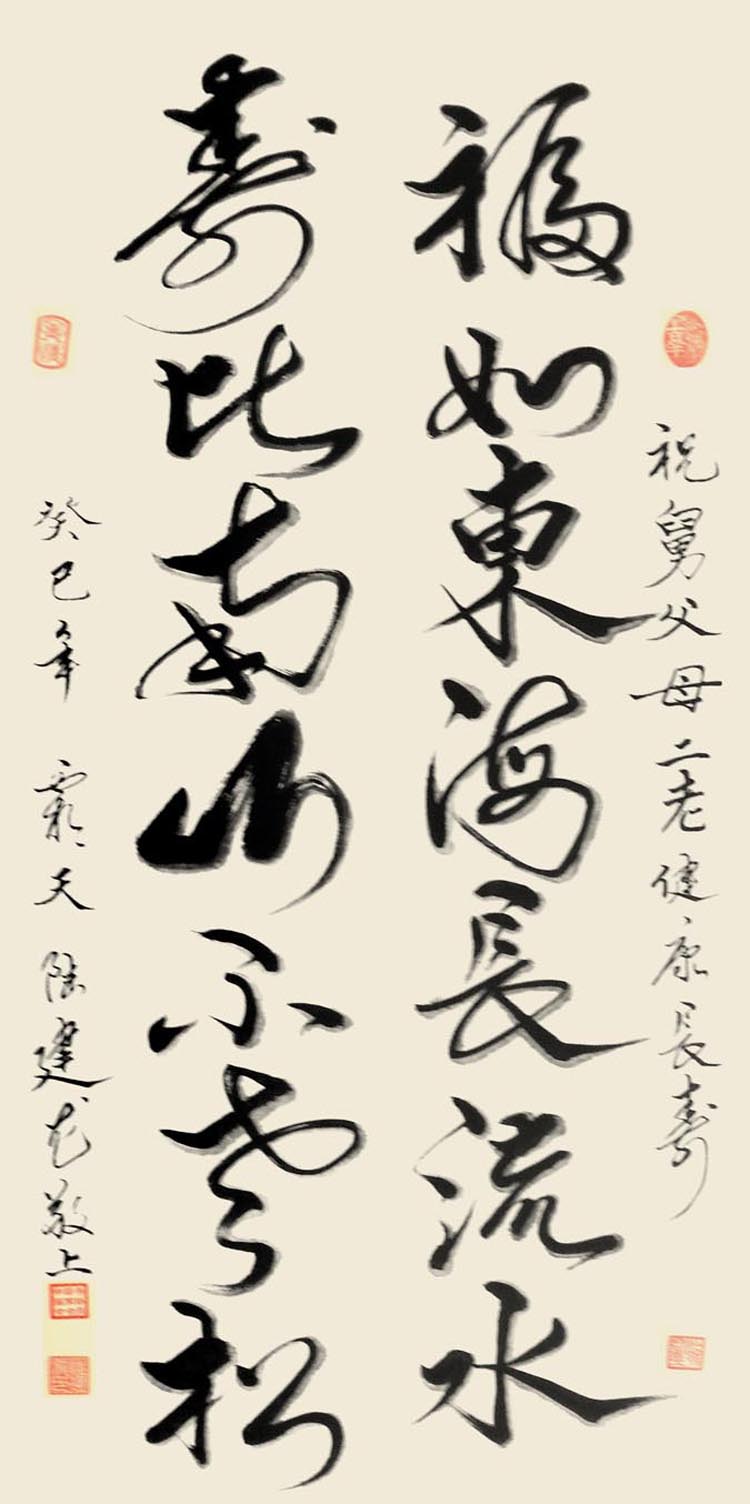 祝舅父母二老健康長壽
福如東海長流水
壽比南山不老松
癸巳年 霜天 陆建龙敬上